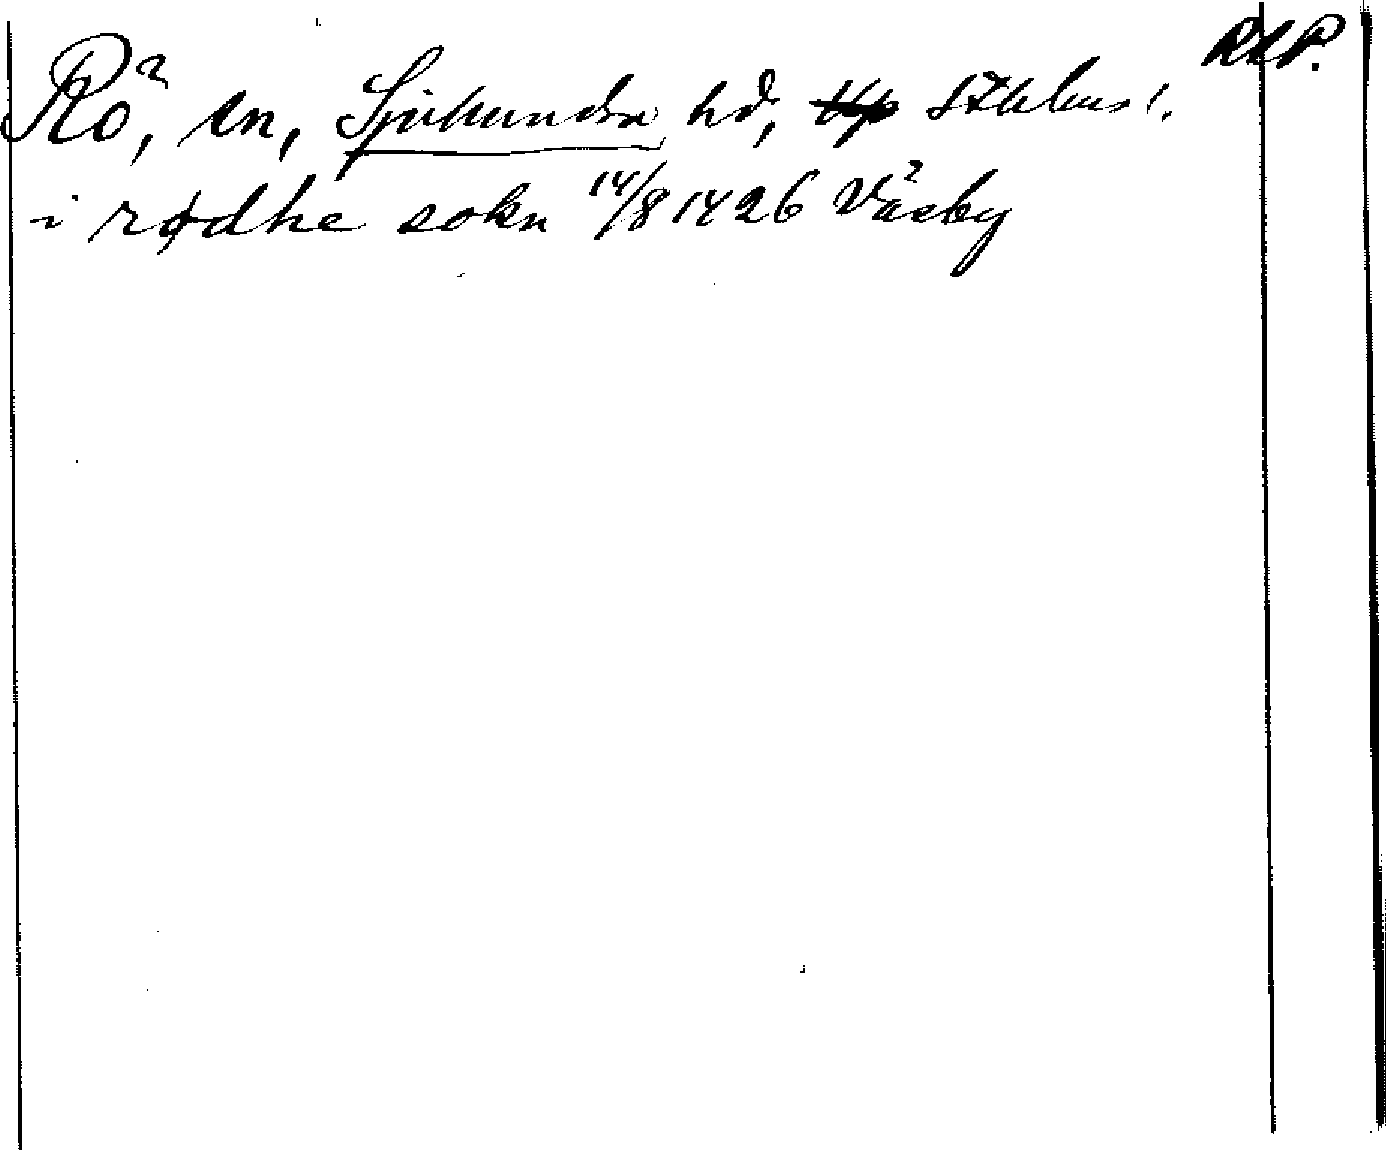 RAP.
Rö, sn, Sjuhundra hd, Up Sthlms l.
i rødhe sokn 14/8 1426 Väsby